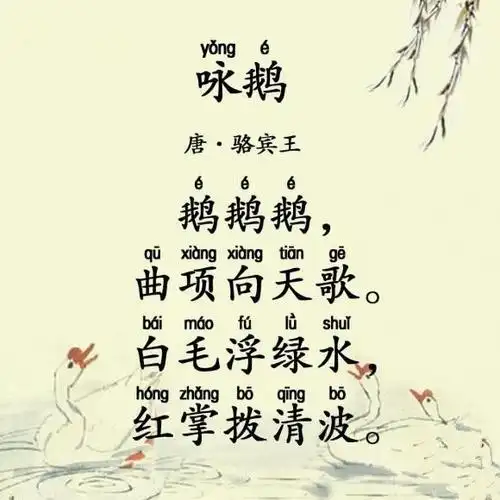 yǒng é
咏鹅
唐·骆宾王
é é é
鹅鹅鹅，
qū xiàng xiàng tiān gē
曲项向天歌。
bái máo fú lǜ shuǐ
白毛浮绿水，
hóng zhǎng bō qīng bō
红掌拨清波。